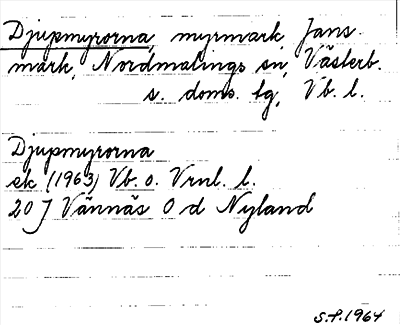 Djupmyrorna, myrmark Jans-
mark, Nordmalings sn, Västerb.
s. doms. lg, Vb. l.
Djupmyrorna
ek (1963) Vb. o. Vrnl. l.
20 J Vännäs O d Nyland
S.P. 1964